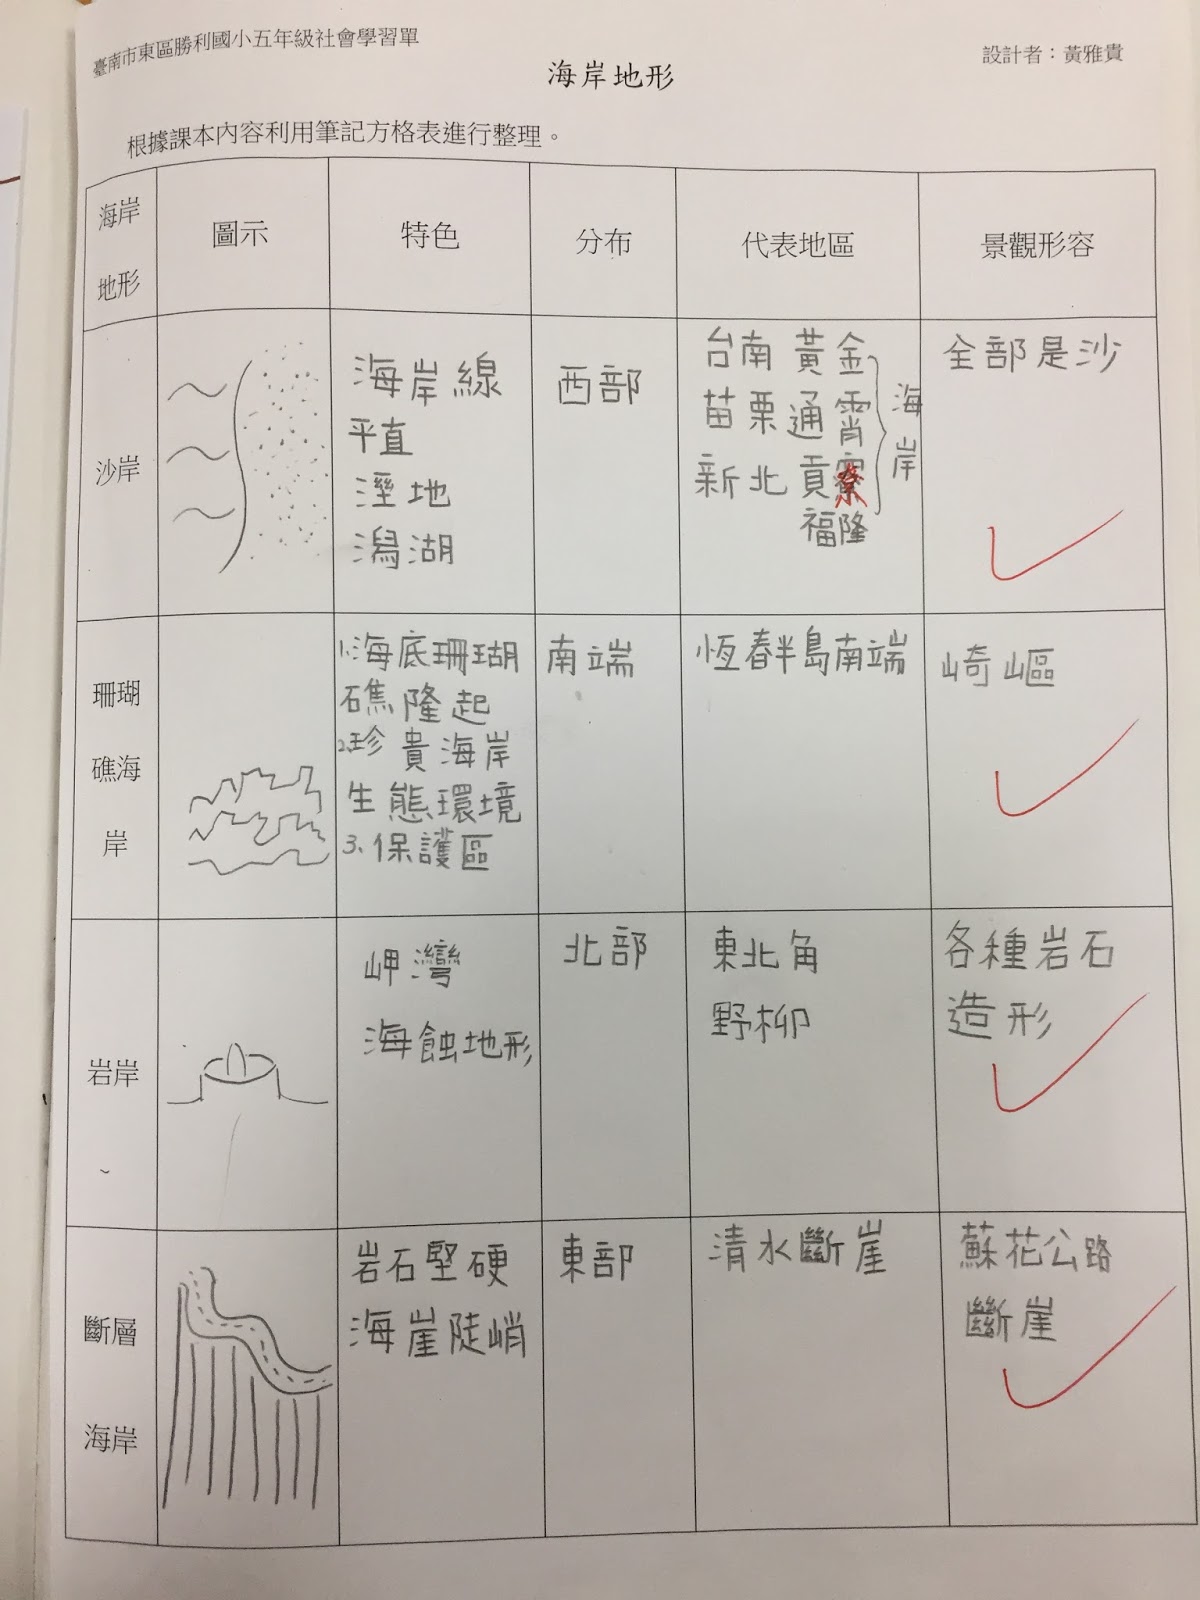 臺南市東區勝利國小五年級社會學習單
設計者：黃雅貴
海岸地形
根據課本內容利用筆記方格表進行整理。
海岸
地形
圖示
特色
分布
代表地區
景觀形容
沙岸
海岸線
平直
溼地
潟湖
西部
台南 黃金
苗栗通霄
新北 貢寮
福隆
海岸
全部是沙
珊瑚
礁海
岸
1.海底珊瑚
礁隆起
2.珍貴海岸
生態環境
3.保護區
南端
恆春半島南端
崎嶇
岩岸
岬灣
海蝕地形
北部
東北角
野柳
各種岩石
造形
斷層
海岸
岩石堅硬
海崖陡峭
東部
清水斷崖
蘇花公路
斷崖